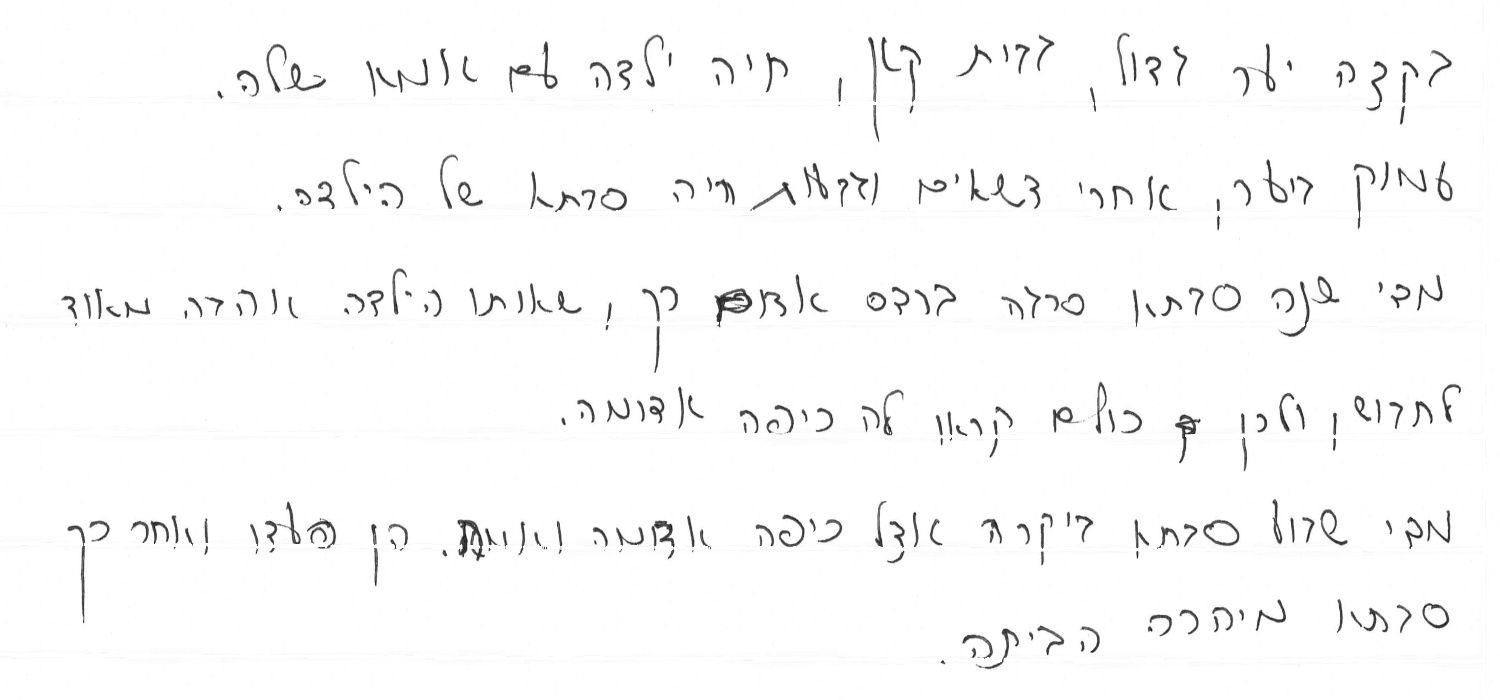 בקצה יער גדול, בבית קטן, חיה ילדה עם אמא שלה.
עמוק ביער, אחרי דשאים וגבעות חיה סבתא של הילדה.
מדי שנה סבתא סרגה ברדס אדום רך, שאותו הילדה אהבה מאוד
לחבוש, ולכן כולם קראו לה כיפה אדומה.
מדי שבוע סבתא ביקרה אצל כיפה אדומה ואמא. הן סעדו ואחר כך
סבתא מיהרה הביתה.